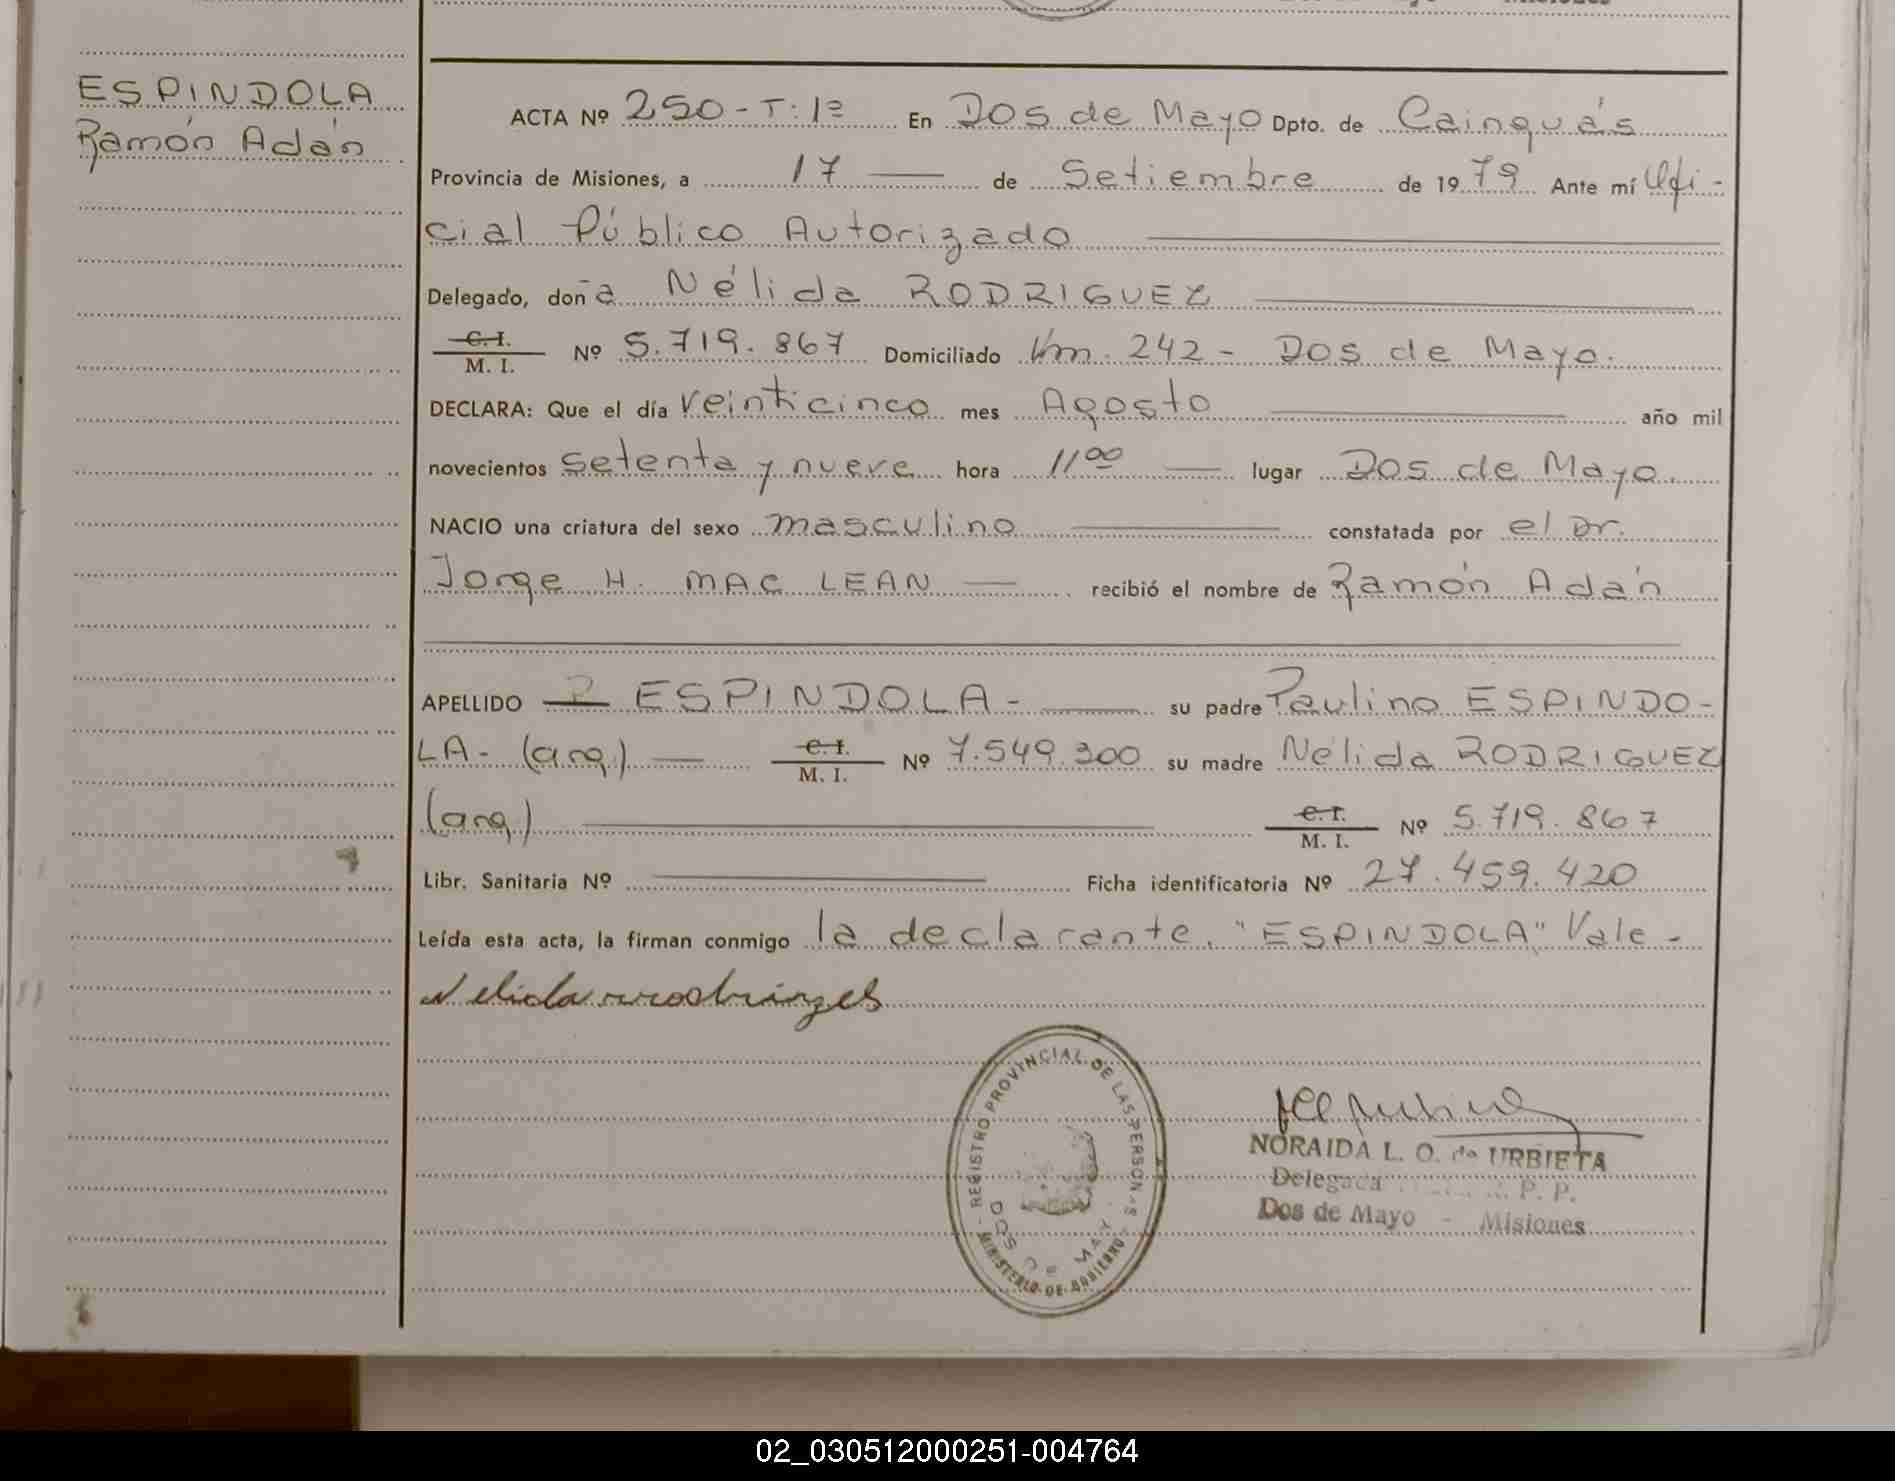 ESPINDOLA
Ramón Adán
ACTA Nº 250-T:1º En Dos de Mayo Dpto. de Cainguás
Provincia de Misiones, a 17 — de Setiembre de 1979 Ante mí Ofi-
cial Público Autorizado
Delegado, doña Nélida RODRIGUEZ
C.I.
M. I. Nº 5.719.867 Domiciliado Km. 242 - Dos de Mayo.
DECLARA: Que el día veinticinco mes Agosto año mil
novecientos setenta y nueve hora 11 00 lugar Dos de Mayo.
NACIO una criatura del sexo masculino constatada por el Dr.
Jorge H. MAC LEAN — recibió el nombre de Ramón Adán
APELLIDO ESPINDOLA - su padre Paulino ESPINDO-
LA - (arg.) — C.I.
M. I. Nº 7.549.300 su madre Nélida RODRIGUEZ
(arg.) C.I.
M. I. Nº 5.719.867
Libr. Sanitaria Nº — Ficha identificatoria Nº 27.459.420
Leída esta acta, la firman conmigo la declarante. "ESPINDOLA" Vale -
REGISTRO PROVINCIAL DE LAS PERSONAS
DOS DE MAYO
MINISTERIO DE GOBIERNO
NORAIDA L. O. de URBIETA
Delegada R. P. P.
Dos de Mayo - Misiones
02_030512000251-004764